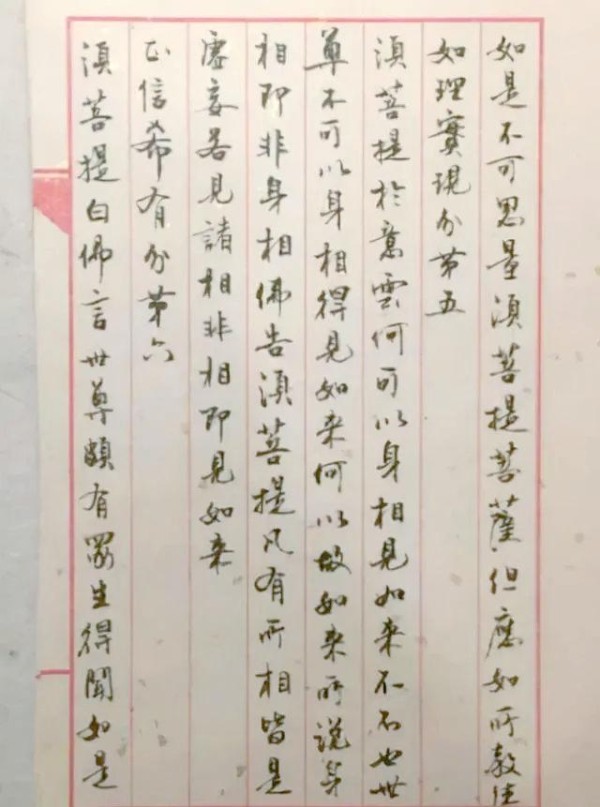 如是不可思量須菩提菩薩但應如所教住
如理實現分第五
須菩提於意雲何可以身相見如来不不也世
尊不可以身相得見如来何以故如来所説身
相即非身相佛告須菩提凡有所相皆是
虛妄若見諸相非相即見如来
正信希有分第六
須菩提白佛言世尊頗有眾生得聞如是